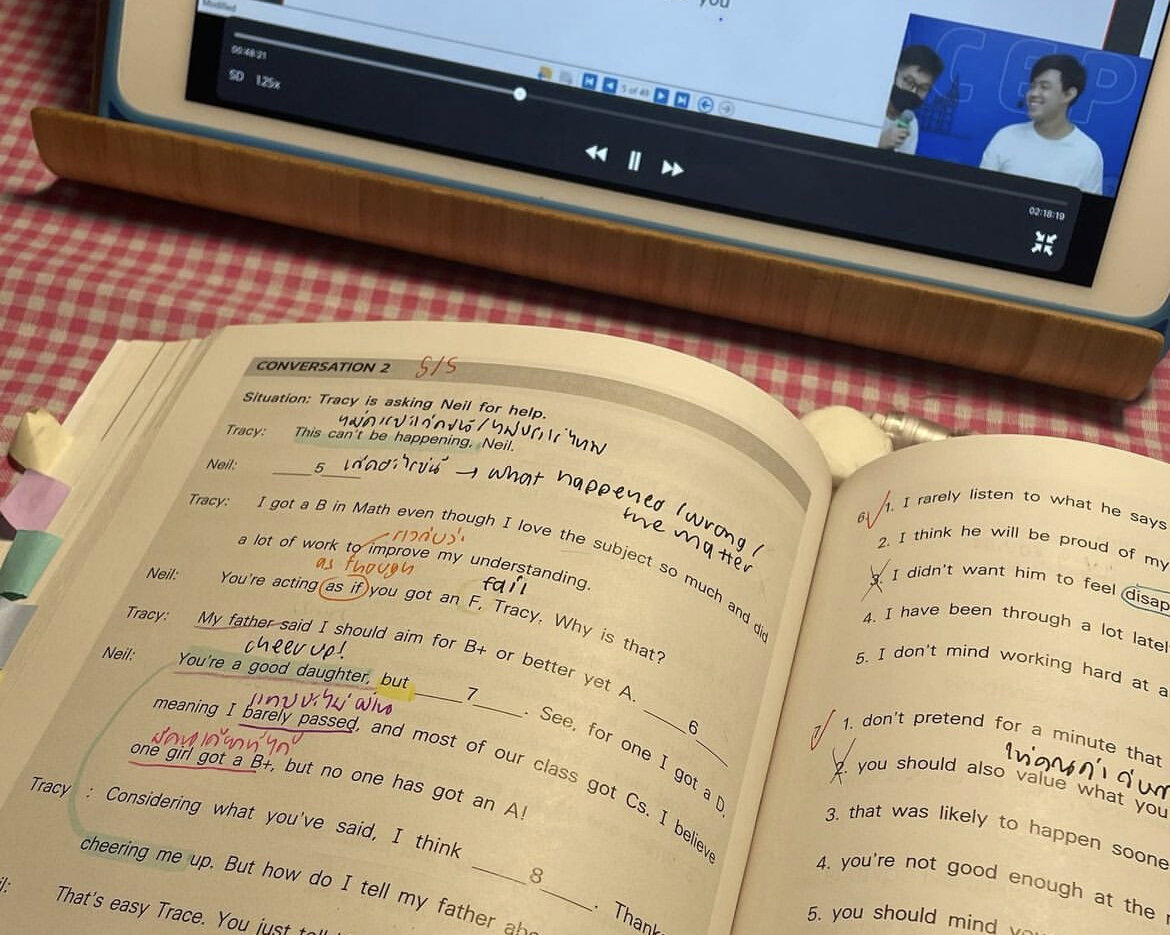 you
Modified
00:48:21
SD 1.25x
5 of 49
CEP
02:18:19
CONVERSATION 2 5/5
Situation: Tracy is asking Neil for help.
Tracy: This can't be happening, Neil.
Neil: ____5____ → what happened / wrong /
the matter
Tracy: I got a B in Math even though I love the subject so much and did
a lot of work to improve my understanding.
as though
fail
Neil: You're acting as if you got an F, Tracy. Why is that?
Tracy: My father said I should aim for B+ or better yet A. ____6____
cheer up!
Neil: You're a good daughter, but ____7____. See, for one I got a D,
meaning I barely passed, and most of our class got Cs. I believe
one girl got a B+, but no one has got an A!
Tracy : Considering what you've said, I think ____8____. Thank
cheering me up. But how do I tell my father
That's easy Trace. You just
6 1. I rarely listen to what he says
2. I think he will be proud of my
3. I didn't want him to feel disap
4. I have been through a lot latel
5. I don't mind working hard at a
7 1. don't pretend for a minute that
2. you should also value what you
3. that was likely to happen soone
4. you're not good enough at the
5. you should mind